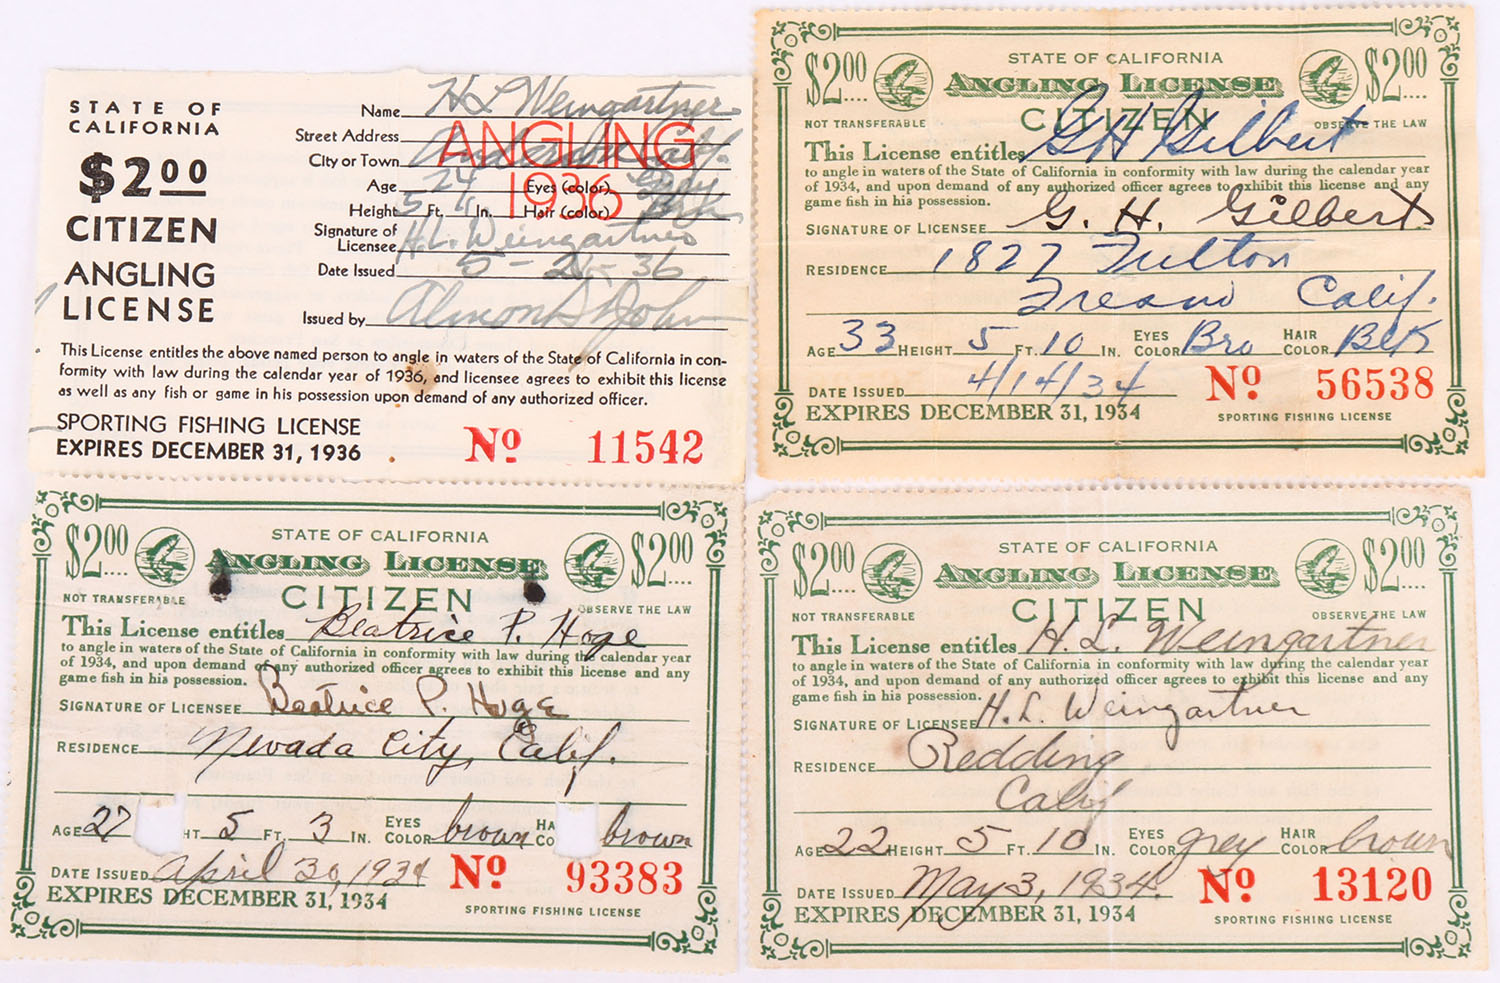 STATE OF
CALIFORNIA
$2.00
CITIZEN
ANGLING
LICENSE
Name H L Weingartner
Street Address
City or Town Calif.
ANGLING
1936
Age 24 Eyes (color) Gray
Height 5 Ft. In. Hair (color)
Signature of
Licensee H.L. Weingartner
Date Issued 5-26-36
Issued by Almon St John
This License entitles the above named person to angle in waters of the State of California in con-
formity with law during the calendar year of 1936, and licensee agrees to exhibit this license
as well as any fish or game in his possession upon demand of any authorized officer.
SPORTING FISHING LICENSE
EXPIRES DECEMBER 31, 1936
No 11542
$2.00 STATE OF CALIFORNIA $2.00
ANGLING LICENSE
NOT TRANSFERABLE CITIZEN OBSERVE THE LAW
This License entitles G H Gilbert
to angle in waters of the State of California in conformity with law during the calendar year
of 1934, and upon demand of any authorized officer agrees to exhibit this license and any
game fish in his possession.
SIGNATURE OF LICENSEE G. H. Gilbert
RESIDENCE 1827 Fulton
Fresno Calif.
AGE 33 HEIGHT 5 FT. 10 IN. EYES COLOR Bro HAIR COLOR Blk
DATE ISSUED 4/14/34
EXPIRES DECEMBER 31, 1934
No 56538
SPORTING FISHING LICENSE
$2.00 STATE OF CALIFORNIA $2.00
ANGLING LICENSE
NOT TRANSFERABLE CITIZEN OBSERVE THE LAW
This License entitles Beatrice P. Hoge
to angle in waters of the State of California in conformity with law during the calendar year
of 1934, and upon demand of any authorized officer agrees to exhibit this license and any
game fish in his possession.
SIGNATURE OF LICENSEE Beatrice P. Hoge
RESIDENCE Nevada City, Calif.
AGE 27 HT 5 FT. 3 IN. EYES COLOR brown HA CO brown
DATE ISSUED April 30, 1934
EXPIRES DECEMBER 31, 1934
No 93383
SPORTING FISHING LICENSE
$2.00 STATE OF CALIFORNIA $2.00
ANGLING LICENSE
NOT TRANSFERABLE CITIZEN OBSERVE THE LAW
This License entitles H. L. Weingartner
to angle in waters of the State of California in conformity with law during the calendar year
of 1934, and upon demand of any authorized officer agrees to exhibit this license and any
game fish in his possession.
SIGNATURE OF LICENSEE H. L. Weingartner
RESIDENCE Redding
Calif
AGE 22 HEIGHT 5 FT. 10 IN. EYES COLOR grey HAIR COLOR brown
DATE ISSUED May 3, 1934.
EXPIRES DECEMBER 31, 1934
No 13120
SPORTING FISHING LICENSE